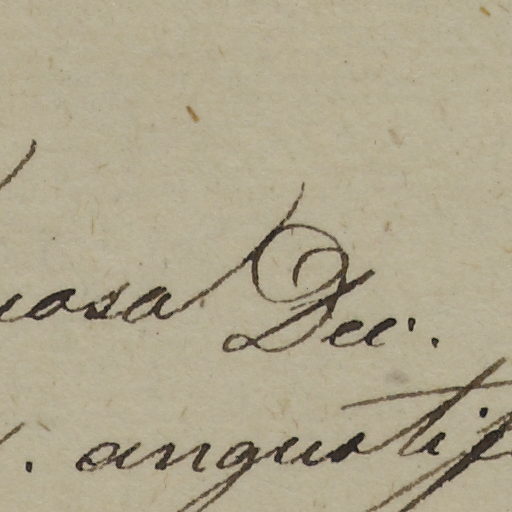 uosa Dec.
. angustif